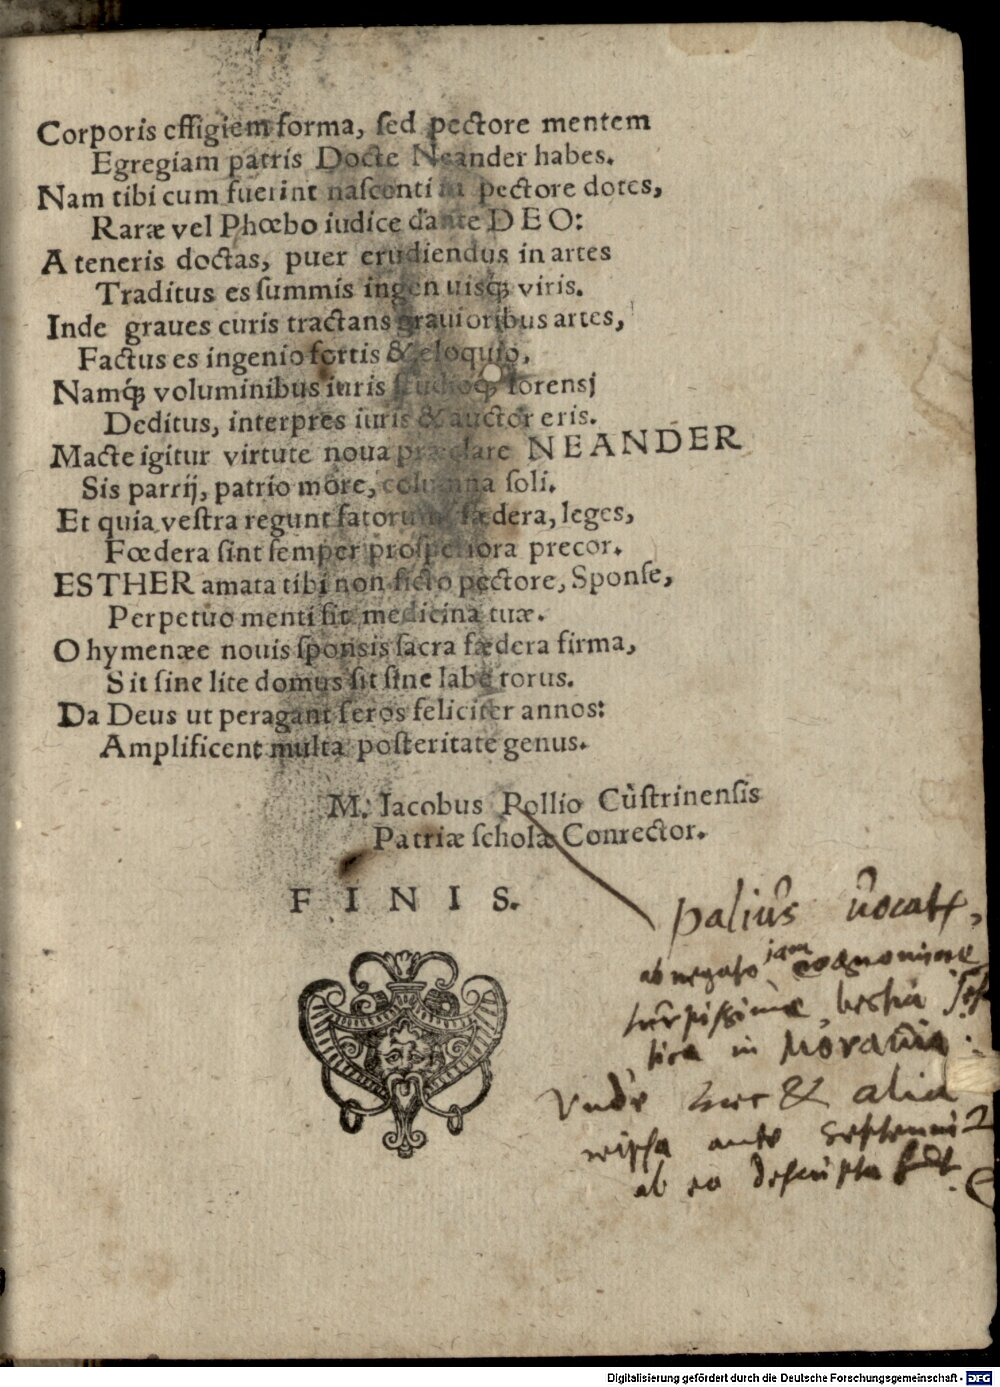 Corporis effigiem forma, sed pectore mentem
Egregiam patris Docte Neander habes.
Nam tibi cum fuerint nascenti in pectore dotes,
Raræ vel Phœbo iudice dante DEO:
A teneris doctas, puer erudiendus in artes
Traditus es summis ingen uisq́; viris.
Inde graues curis tractans grauioribus artes,
Factus es ingenio fortis & eloquio,
Namq́; voluminibus iuris studioq́; forensj
Deditus, interpres iuris & auctor eris.
Macte igitur virtute noua præclare NEANDER
Sis patrij, patrio more, columna soli.
Et quia vestra regunt fatorum fædera, leges,
Fœdera sint semper prosperiora precor.
ESTHER amata tibi non ficto pectore, Sponse,
Perpetuo menti sit medicina tuæ.
O hymenæe nouis sponsis sacra fædera firma,
Sit sine lite domus sit sine labe torus.
Da Deus ut peragant seros feliciter annos:
Amplificent multa posteritate genus.
M. Iacobus Pollio Cůstrinensis
Patriæ scholæ Conrector.
F I N I S.
palius vocat,
ab negato jam
turpissima bestia
in Moravia
Vnde & alia
ante
ab eo descripta
Digitalisierung gefördert durch die Deutsche Forschungsgemeinschaft - DFG